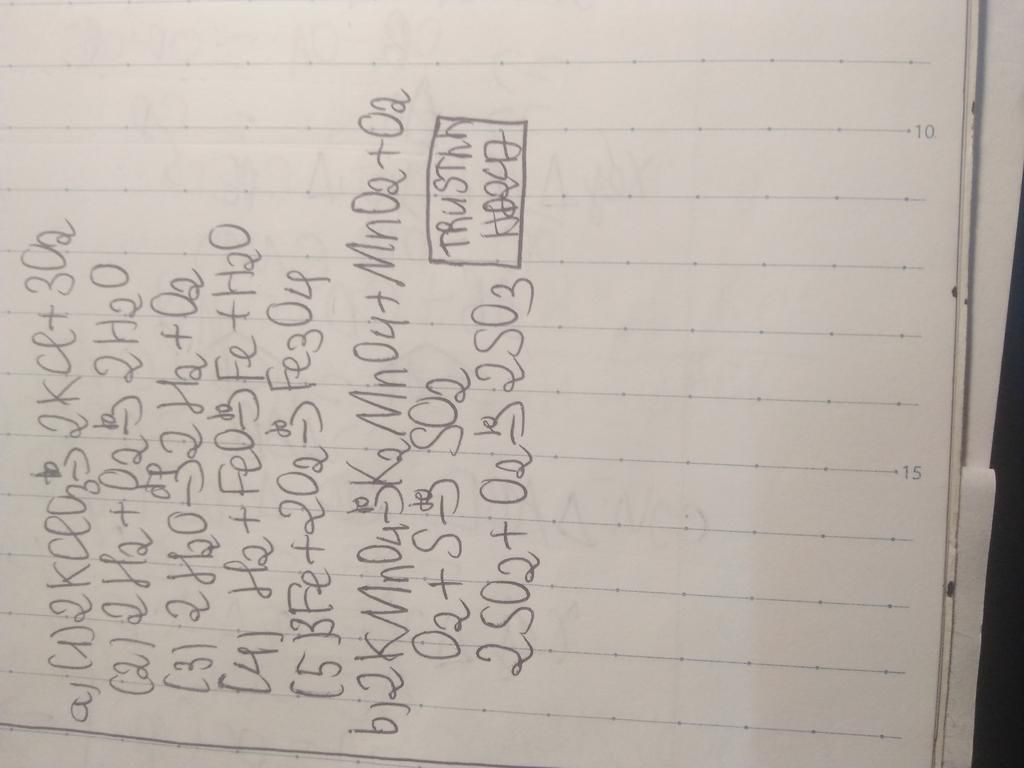 a) (1) 2KClO3 →to 2KCl + 3O2
(2) 2H2 + O2 →to 2H2O
(3) 2H2O →đp 2H2 + O2
(4) H2 + FeO →to Fe + H2O
(5) 3Fe + 2O2 →to Fe3O4
b) 2KMnO4 →to K2MnO4 + MnO2 + O2
O2 + S →to SO2
2SO2 + O2 →to 2SO3
TRUISTNN
10
15